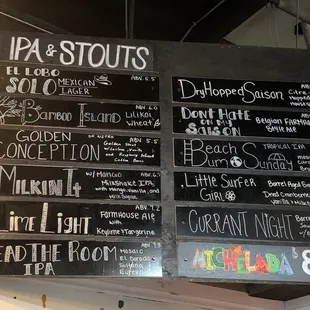 IPA & STOUTS
EL LOBO
SOLO MEXICAN LAGER ABV. 5.5
BAMBOO ISLAND LILIKOI WHEAT ABV. 6.0
GOLDEN CONCEPTION ON NITRO ABV. 5.5
Golden Stout
MILKIN IT W/ MANGO ABV.
MILKSHAKE IPA
with mango, vanilla, and
LIME LIGHT FARMHOUSE ALE ABV.
with Key lime & Tangerine
EAD THE ROOM IPA Mosaic ABV. 7.2
El Dorado
Sultana
Dry Hopped Saison
DON'T HATE ON MY SAISON BELGIAN FARMHOUSE
BEACH BUM SUNDAY TROPICAL IPA
LITTLE SURFER GIRL Barrel Aged
CURRANT NIGHT Barrel
MICHELADA $8